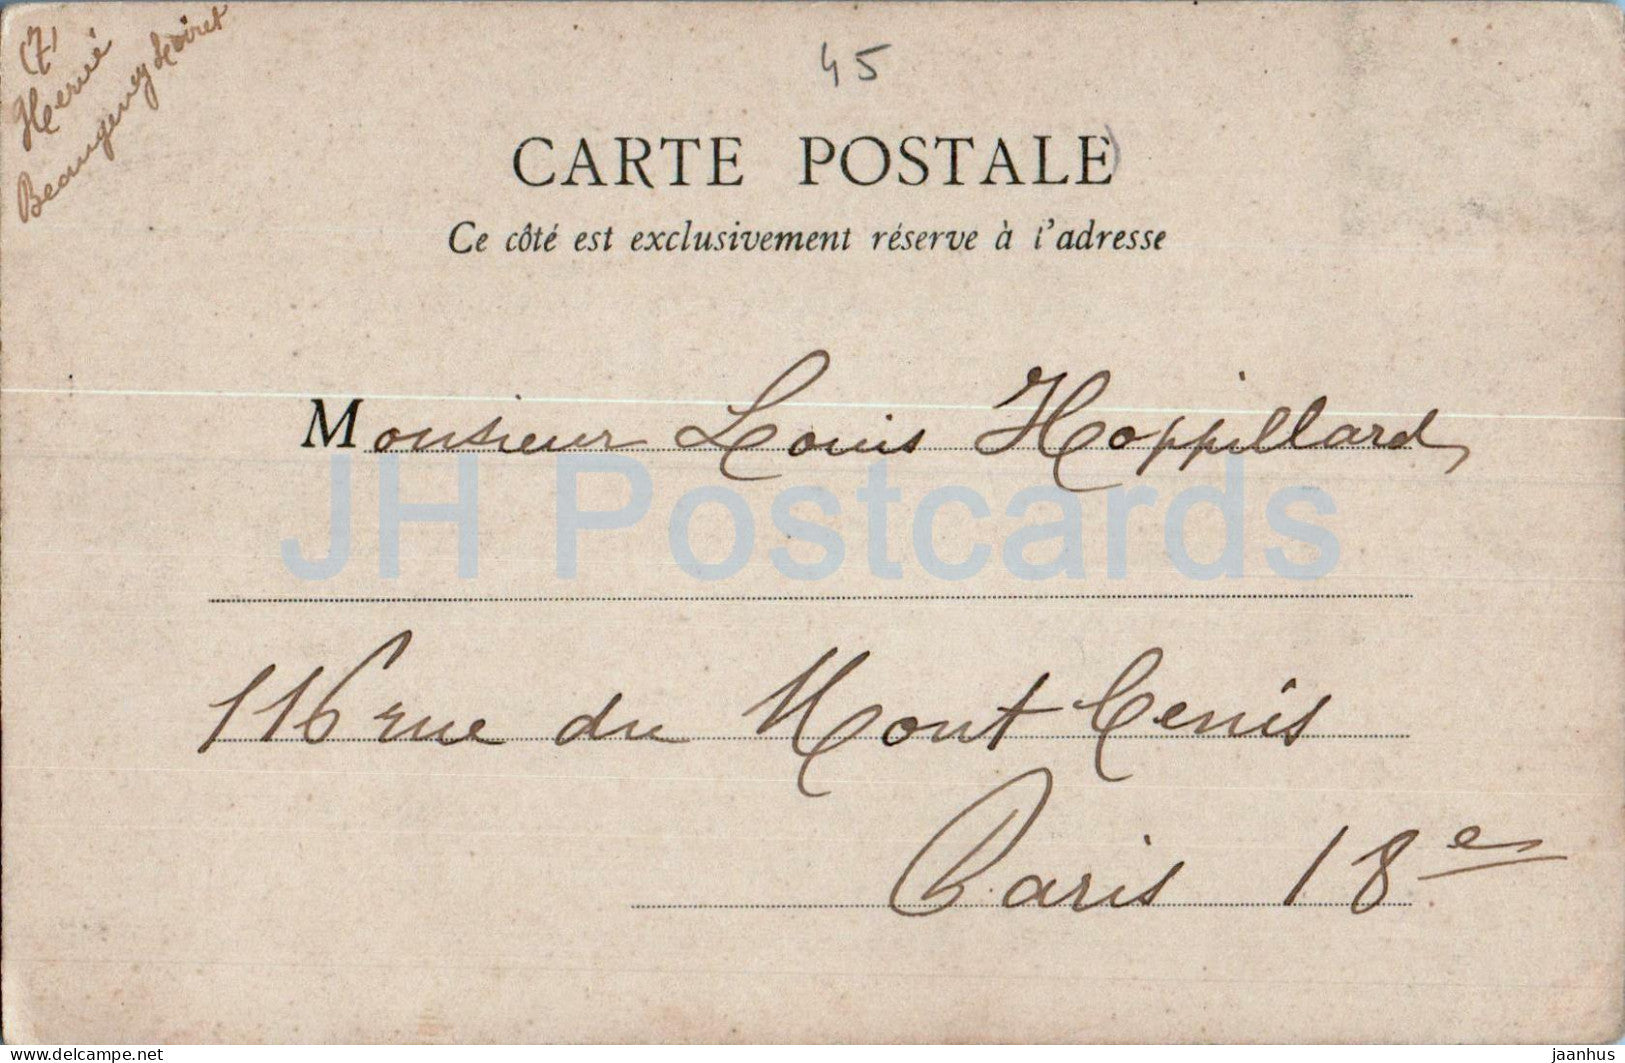 (7)
Hervé
Beaugency Loiret
45
CARTE POSTALE
Ce côté est exclusivement réserve à l'adresse
Monsieur Louis Hoppillard
JH Postcards
116 rue du Mont Cenis
Paris 18e
www.delcampe.net
jaanhus